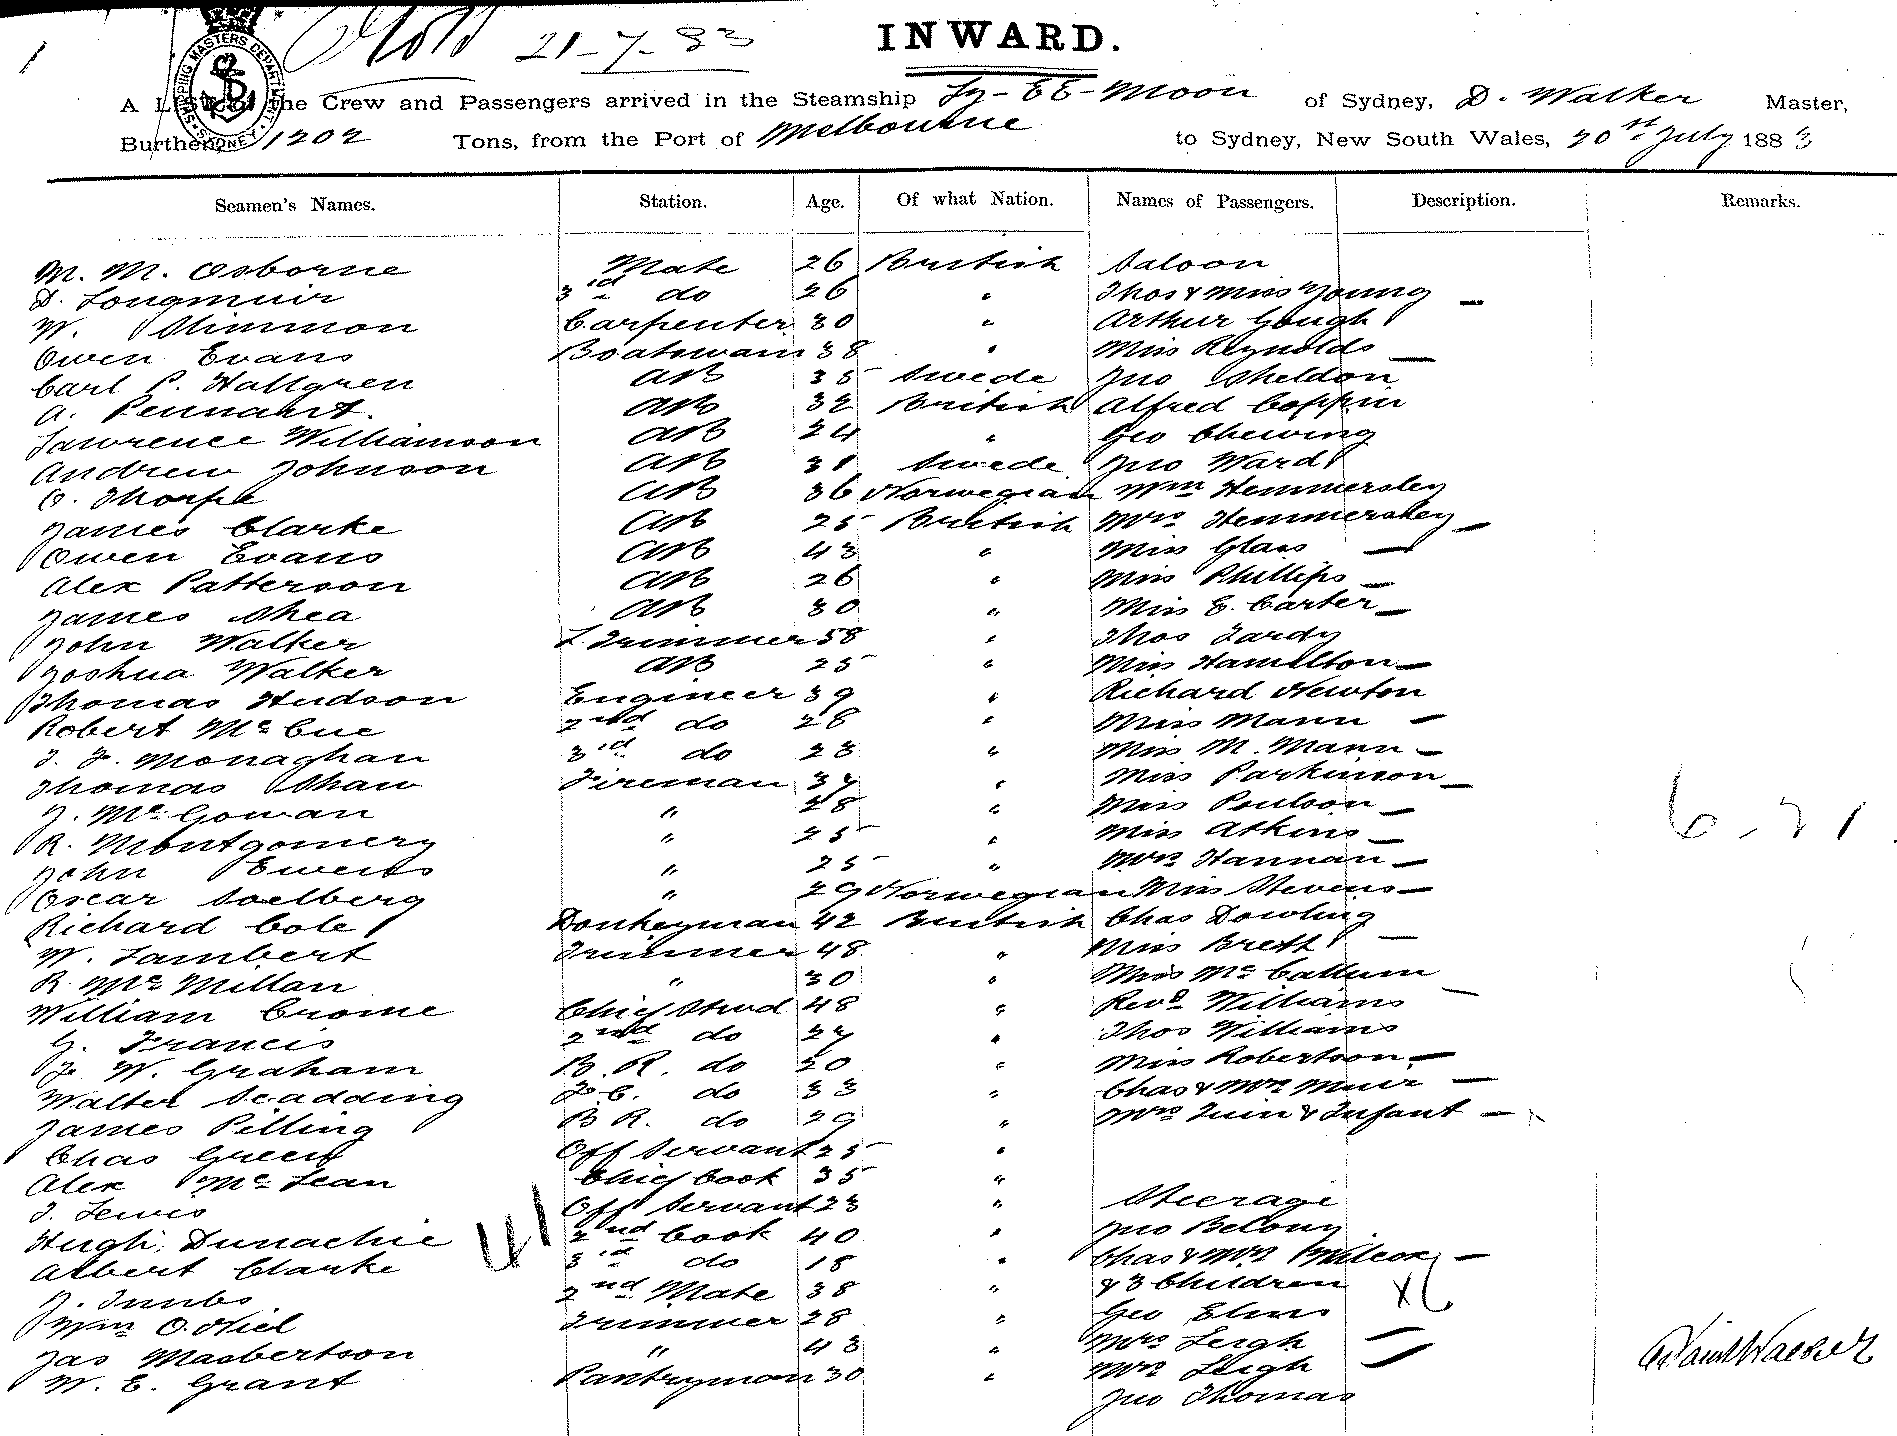 21-7-83
INWARD.
A List of the Crew and Passengers arrived in the Steamship Ly-EE-Moon of Sydney, D. Walker Master,
Burthen, 1202 Tons, from the Port of Melbourne to Sydney, New South Wales, 20st July 1883
Seamen's Names. Station. Age. Of what Nation. Names of Passengers. Description. Remarks.
M. M. Osborne Mate 26 British Saloon
D. Longmuir 3rd do 26 " Thos & Miss Young —
W. Slimmon Carpenter 30 " Arthur Gough
Owen Evans Boatswain 38 " Miss Reynolds —
Carl P. Hallgren AB 35 Swede Jno Sheldon
A. Pennaert. AB 32 British Alfred Coppin
Lawrence Williamson AB 24 " Geo Chewing
Andrew Johnson AB 31 Swede Jno Ward
O. Thorpe AB 36 Norwegian Wm Hemmersley
James Clarke AB 25 British Mrs Hemmersley —
Owen Evans AB 43 " Miss Glass —
Alex Patterson AB 26 " Miss Phillips —
James Shea AB 30 " Miss E. Carter —
John Walker L. Trimmer 58 " Thos Tardy
Joshua Walker AB 25 " Miss Hamilton —
Thomas Hudson Engineer 39 " Richard Newton
Robert McCue 2nd do 28 " Miss Mann —
J. F. Monaghan 3rd do 23 " Miss M. Mann —
Thomas Shaw Fireman 37 " Miss Parkinson —
J. McGowan " 28 " Miss Poulson —
R. Montgomery " 25 " Miss Atkins —
John Ewens " 25 " Mrs Hannan —
Oscar Soelberg " 29 Norwegian Miss Stevens —
Richard Cole Donkeyman 42 British Chas Dowling
W. Lambert Trimmer 48 " Miss Brett —
R. McMillan " 30 " Miss McCallum —
William Crome Chief Stwd 48 " Revd Williams
G. Francis 2nd do 27 " Thos Williams
J. W. Graham B. R. do 20 " Miss Robertson —
Walter Scadding F. C. do 33 " Chas & Mrs Muir —
James Pilling B R. do 29 " Mrs Tuin & Infant —
Chas Green Off Servant 25 "
Alex McLean Chief Cook 35 "
J. Lewis Off Servant 23 " Steerage
Hugh Dunachie 2nd Cook 40 " Jno Belony
Albert Clarke 3rd do 18 " Chas & Mrs Wilcox —
J. Tunbs 2nd Mate 38 " & 3 Children
Wm O.Niel Trimmer 28 " Geo Elms
Jas Masbertson " 43 " Mrs Leigh
W. E. Grant Pantryman 30 " Mrs Leigh
Jno Thomas
David Walker